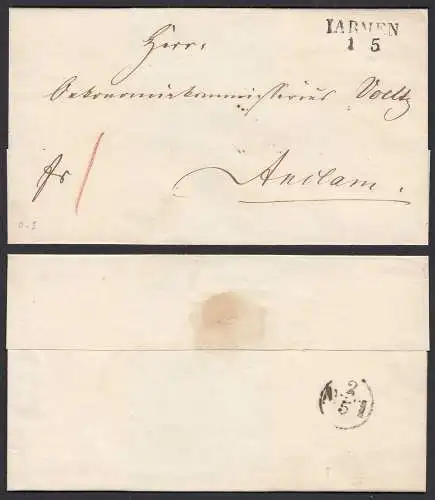 IARMEN
1 5
Herr
Oekonomiekommissarius Voeltz
fr
Anclam.
2
5